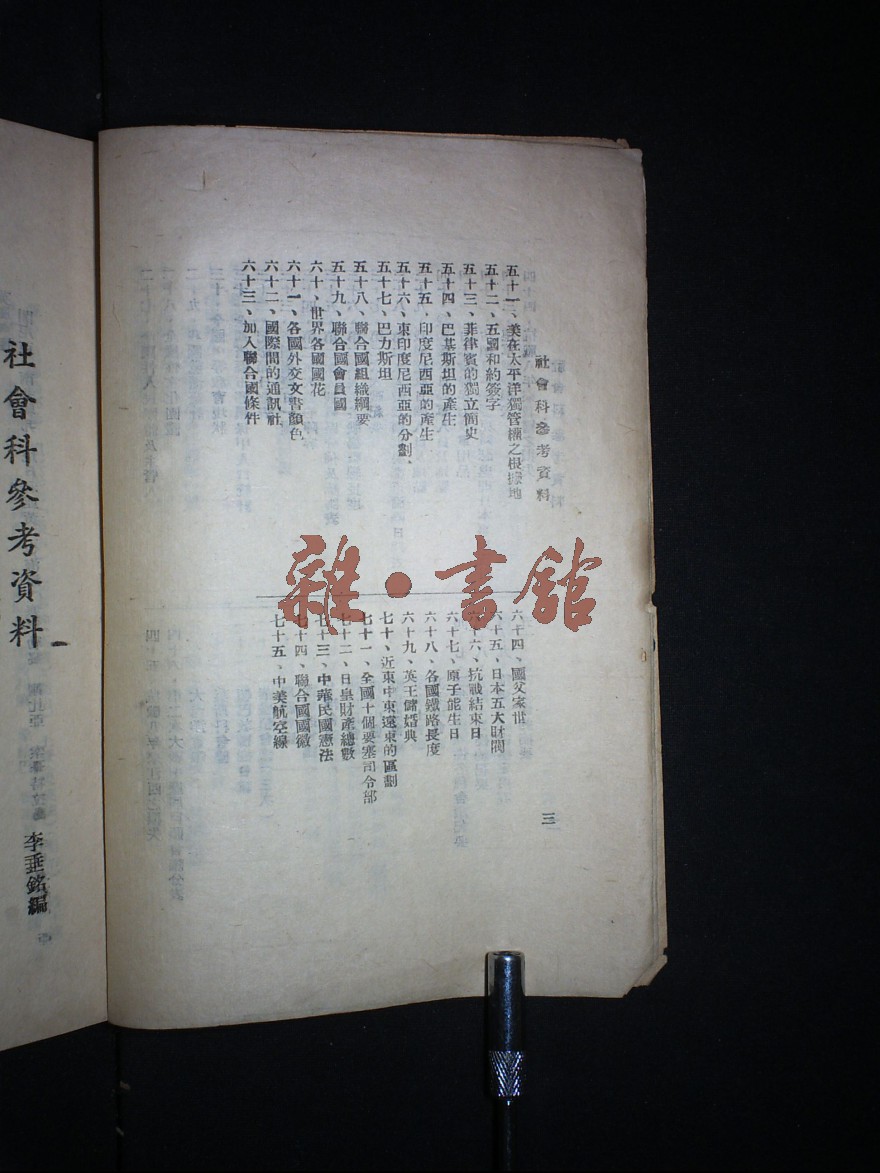 社會科參考資料
五十一、美在太平洋獨管權之根據地
五十二、五國和約簽字
五十三、菲律賓的獨立簡史
五十四、巴基斯坦的產生
五十五、印度尼西亞的產生
五十六、東印度尼西亞的分劃、
五十七、巴力斯坦
五十八、聯合國組織綱要
五十九、聯合國會員國
六十、世界各國國花
六十一、各國外交文書顏色
六十二、國際間的通訊社
六十三、加入聯合國條件
六十四、國父家世
六十五、日本五大財閥
六十六、抗戰結束日
六十七、原子能生日
六十八、各國鐵路長度
六十九、英王儲婚典
七十、近東中東遠東的區劃
七十一、全國十個要塞司令部
七十二、日皇財產總數
七十三、中華民國憲法
七十四、聯合國國徽
七十五、中美航空線
三
社會科參考資料
李垂銘編
雜·書館